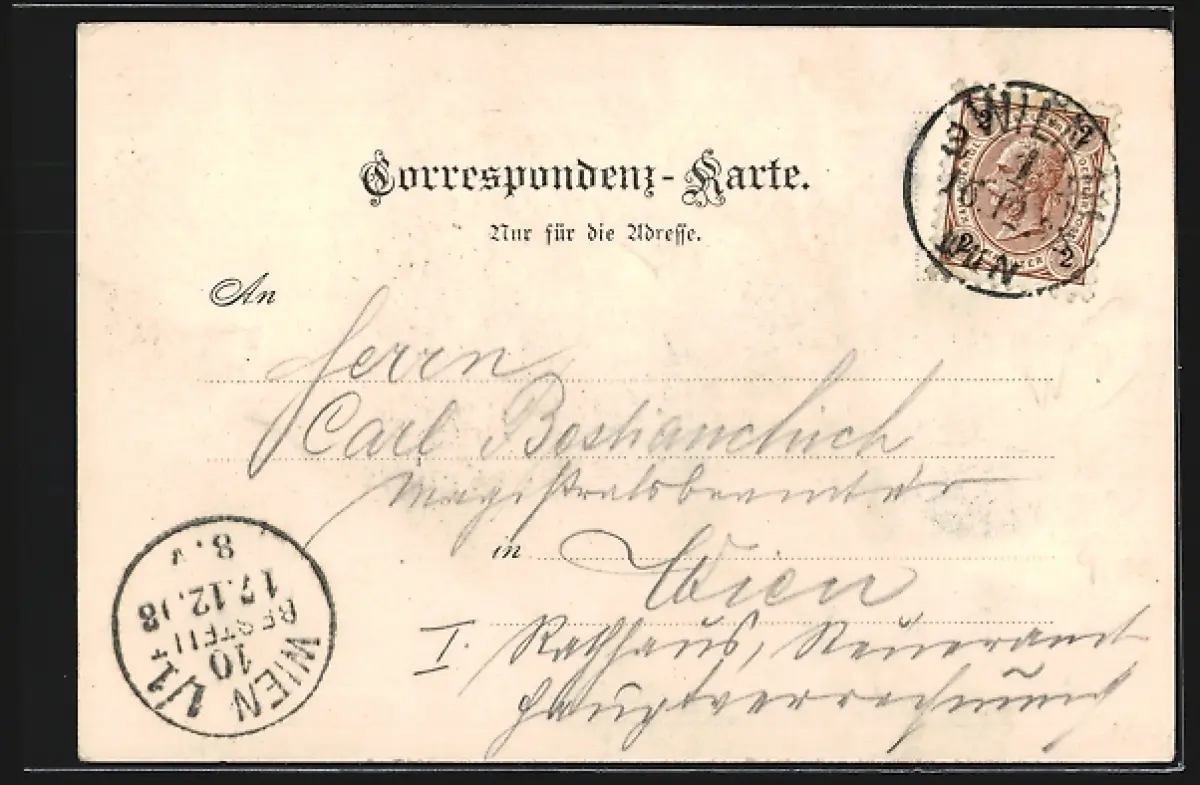 Correspondenz-Karte.
Nur für die Adresse.
WIEN
2 2
An
Herrn
Carl Bostianchich
Magistratsbeamter
in Wien
I. Rathaus, Steueramt
Hauptverrechnung
WIEN 1/1
10
BESTELLT
17.12.98
8.V